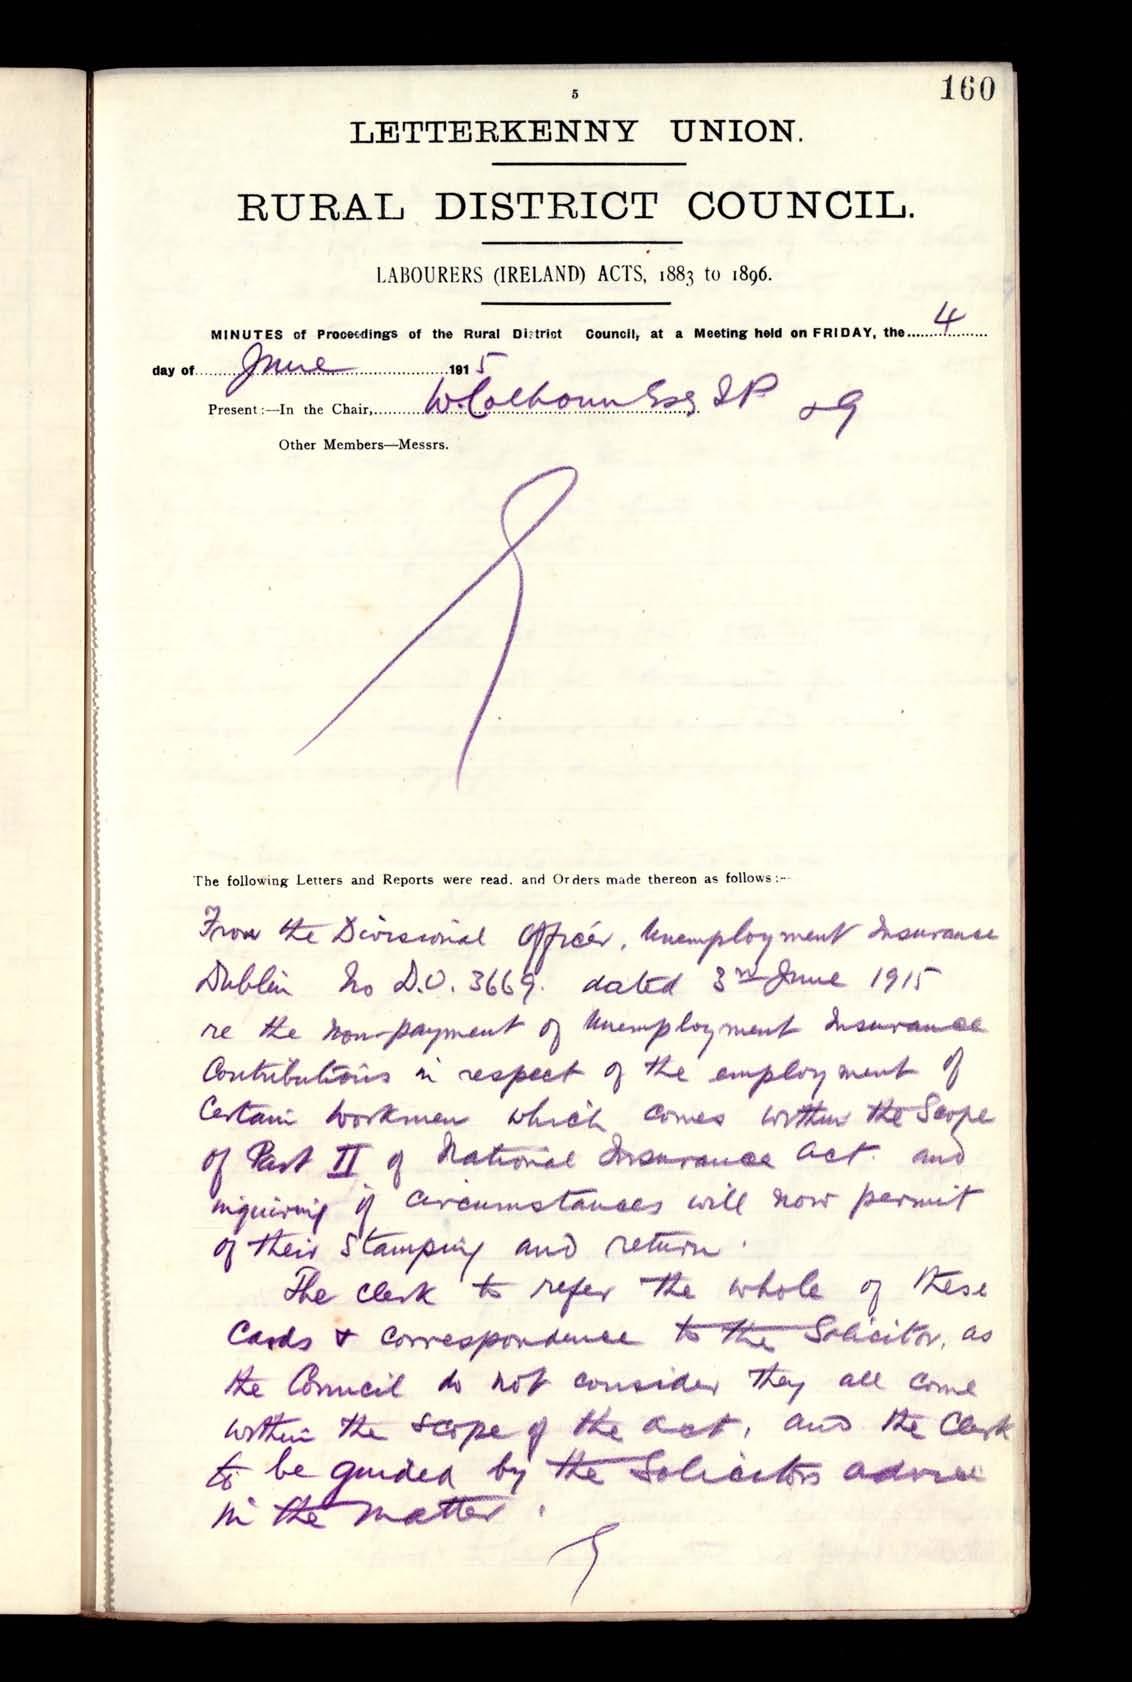 160
5
LETTERKENNY UNION.
RURAL DISTRICT COUNCIL.
LABOURERS (IRELAND) ACTS, 1883 to 1896.
MINUTES of Proceedings of the Rural District Council, at a Meeting held on FRIDAY, the 4
day of June 1915
Present:—In the Chair, W. Colhoun Esq JP
Other Members—Messrs.
The following Letters and Reports were read. and Orders made thereon as follows:—
From the Divisional Officer, Unemployment Insurance
Dublin No D.O. 3669. dated 3rd June 1915
re the Non-payment of Unemployment Insurance
Contributions in respect of the employment of
Certain Workmen which comes within the Scope
of Part II of National Insurance Act. and
inquiring if circumstances will now permit
of their Stamping and return.
The Clerk to refer the whole of these
Cards & correspondence to the Solicitor, as
the Council do not consider they all come
within the scope of the act, and the Clerk
to be guided by the Solicitors advice
in the matter.